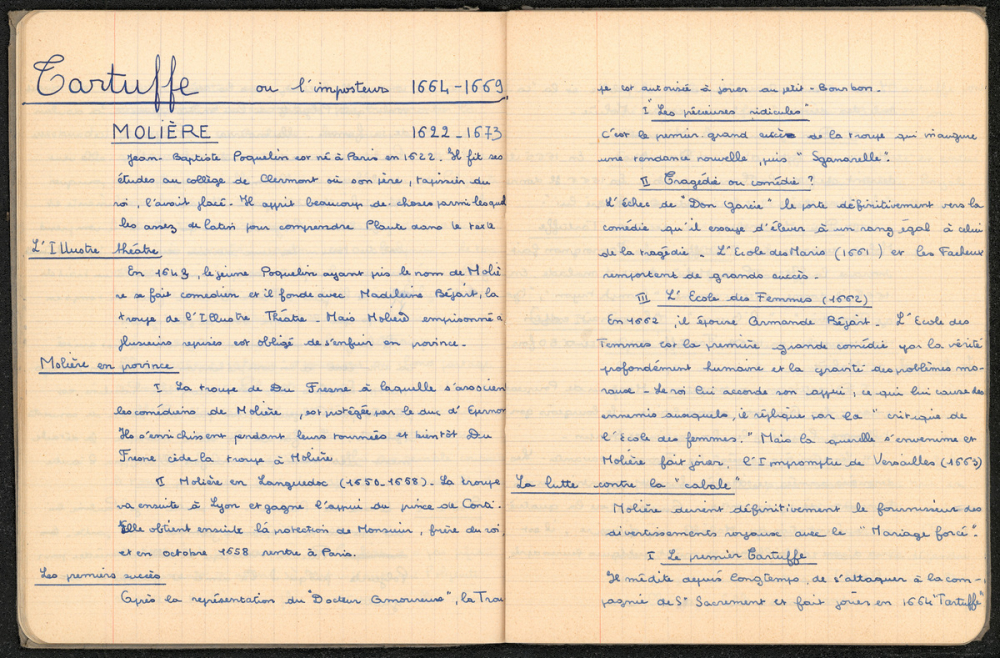 Tartuffe ou l'imposteur 1664-1669
MOLIÈRE 1622-1673
Jean-Baptiste Poquelin est né à Paris en 1622. Il fit ses
études au collège de Clermont où son père, tapissier du
roi, l'avait placé. Il apprit beaucoup de choses parmi lesquel
les assez de latin pour comprendre Plaute dans le texte
L'Illustre théâtre
En 1643, le jeune Poquelin ayant pris le nom de Moliè
re se fait comedien et il fonde avec Madeleine Béjart, la
troupe de l'Illustre Théatre. Mais Molière emprisonné à
plusieurs reprises est obligé de s'enfuir en province.
Molière en province
I La troupe de Du Fresne à laquelle s'associent
les comédiens de Molière, est protégée par le duc d'Epernon
Ils s'enrichissent pendant leurs tournées et bientôt Du
Fresne cède la troupe à Molière
II Molière en Languedoc (1650-1658). La troupe
va ensuite à Lyon et gagne l'appui du prince de Conti.
Elle obtient ensuite la protection de Monsieur, frère du roi
et en octobre 1658 rentre à Paris.
Les premiers succès
Après la représentation du "Docteur Amoureux", la Trou
pe est autorisée à jouer au petit-Bourbon.
I "Les précieuses ridicules"
C'est le premier grand succès de la troupe qui inaugure
une tendance nouvelle, puis "Sganarelle".
II Tragédie ou comédie ?
L'Echec de "Don Garcie" le porte définitivement vers la
comédie qu'il essaye d'élever à un rang égal à celui
de la tragédie. L'Ecole des Maris (1661) et les Facheux
remportent de grands succès.
III L'Ecole des Femmes (1662)
En 1662, il épouse Armande Béjart. L'Ecole des
Femmes est la première grande comédie par la vérité
profondément humaine et la gravité des problèmes mo-
raux. Le roi lui accorde son appui, ce qui lui cause des
ennemis auxquels, il réplique par la "critique de
l'Ecole des femmes." Mais la querelle s'envenime et
Molière fait jouer, l'Impromptu de Versailles (1663)
La lutte contre la "cabale"
Molière devient définitivement le fournisseur des
divertissements royaux avec le "Mariage forcé".
I Le premier Tartuffe
Il médite depuis longtemps, de s'attaquer à la com-
pagnie du St Sacrement et fait jouer en 1664 "Tartuffe"